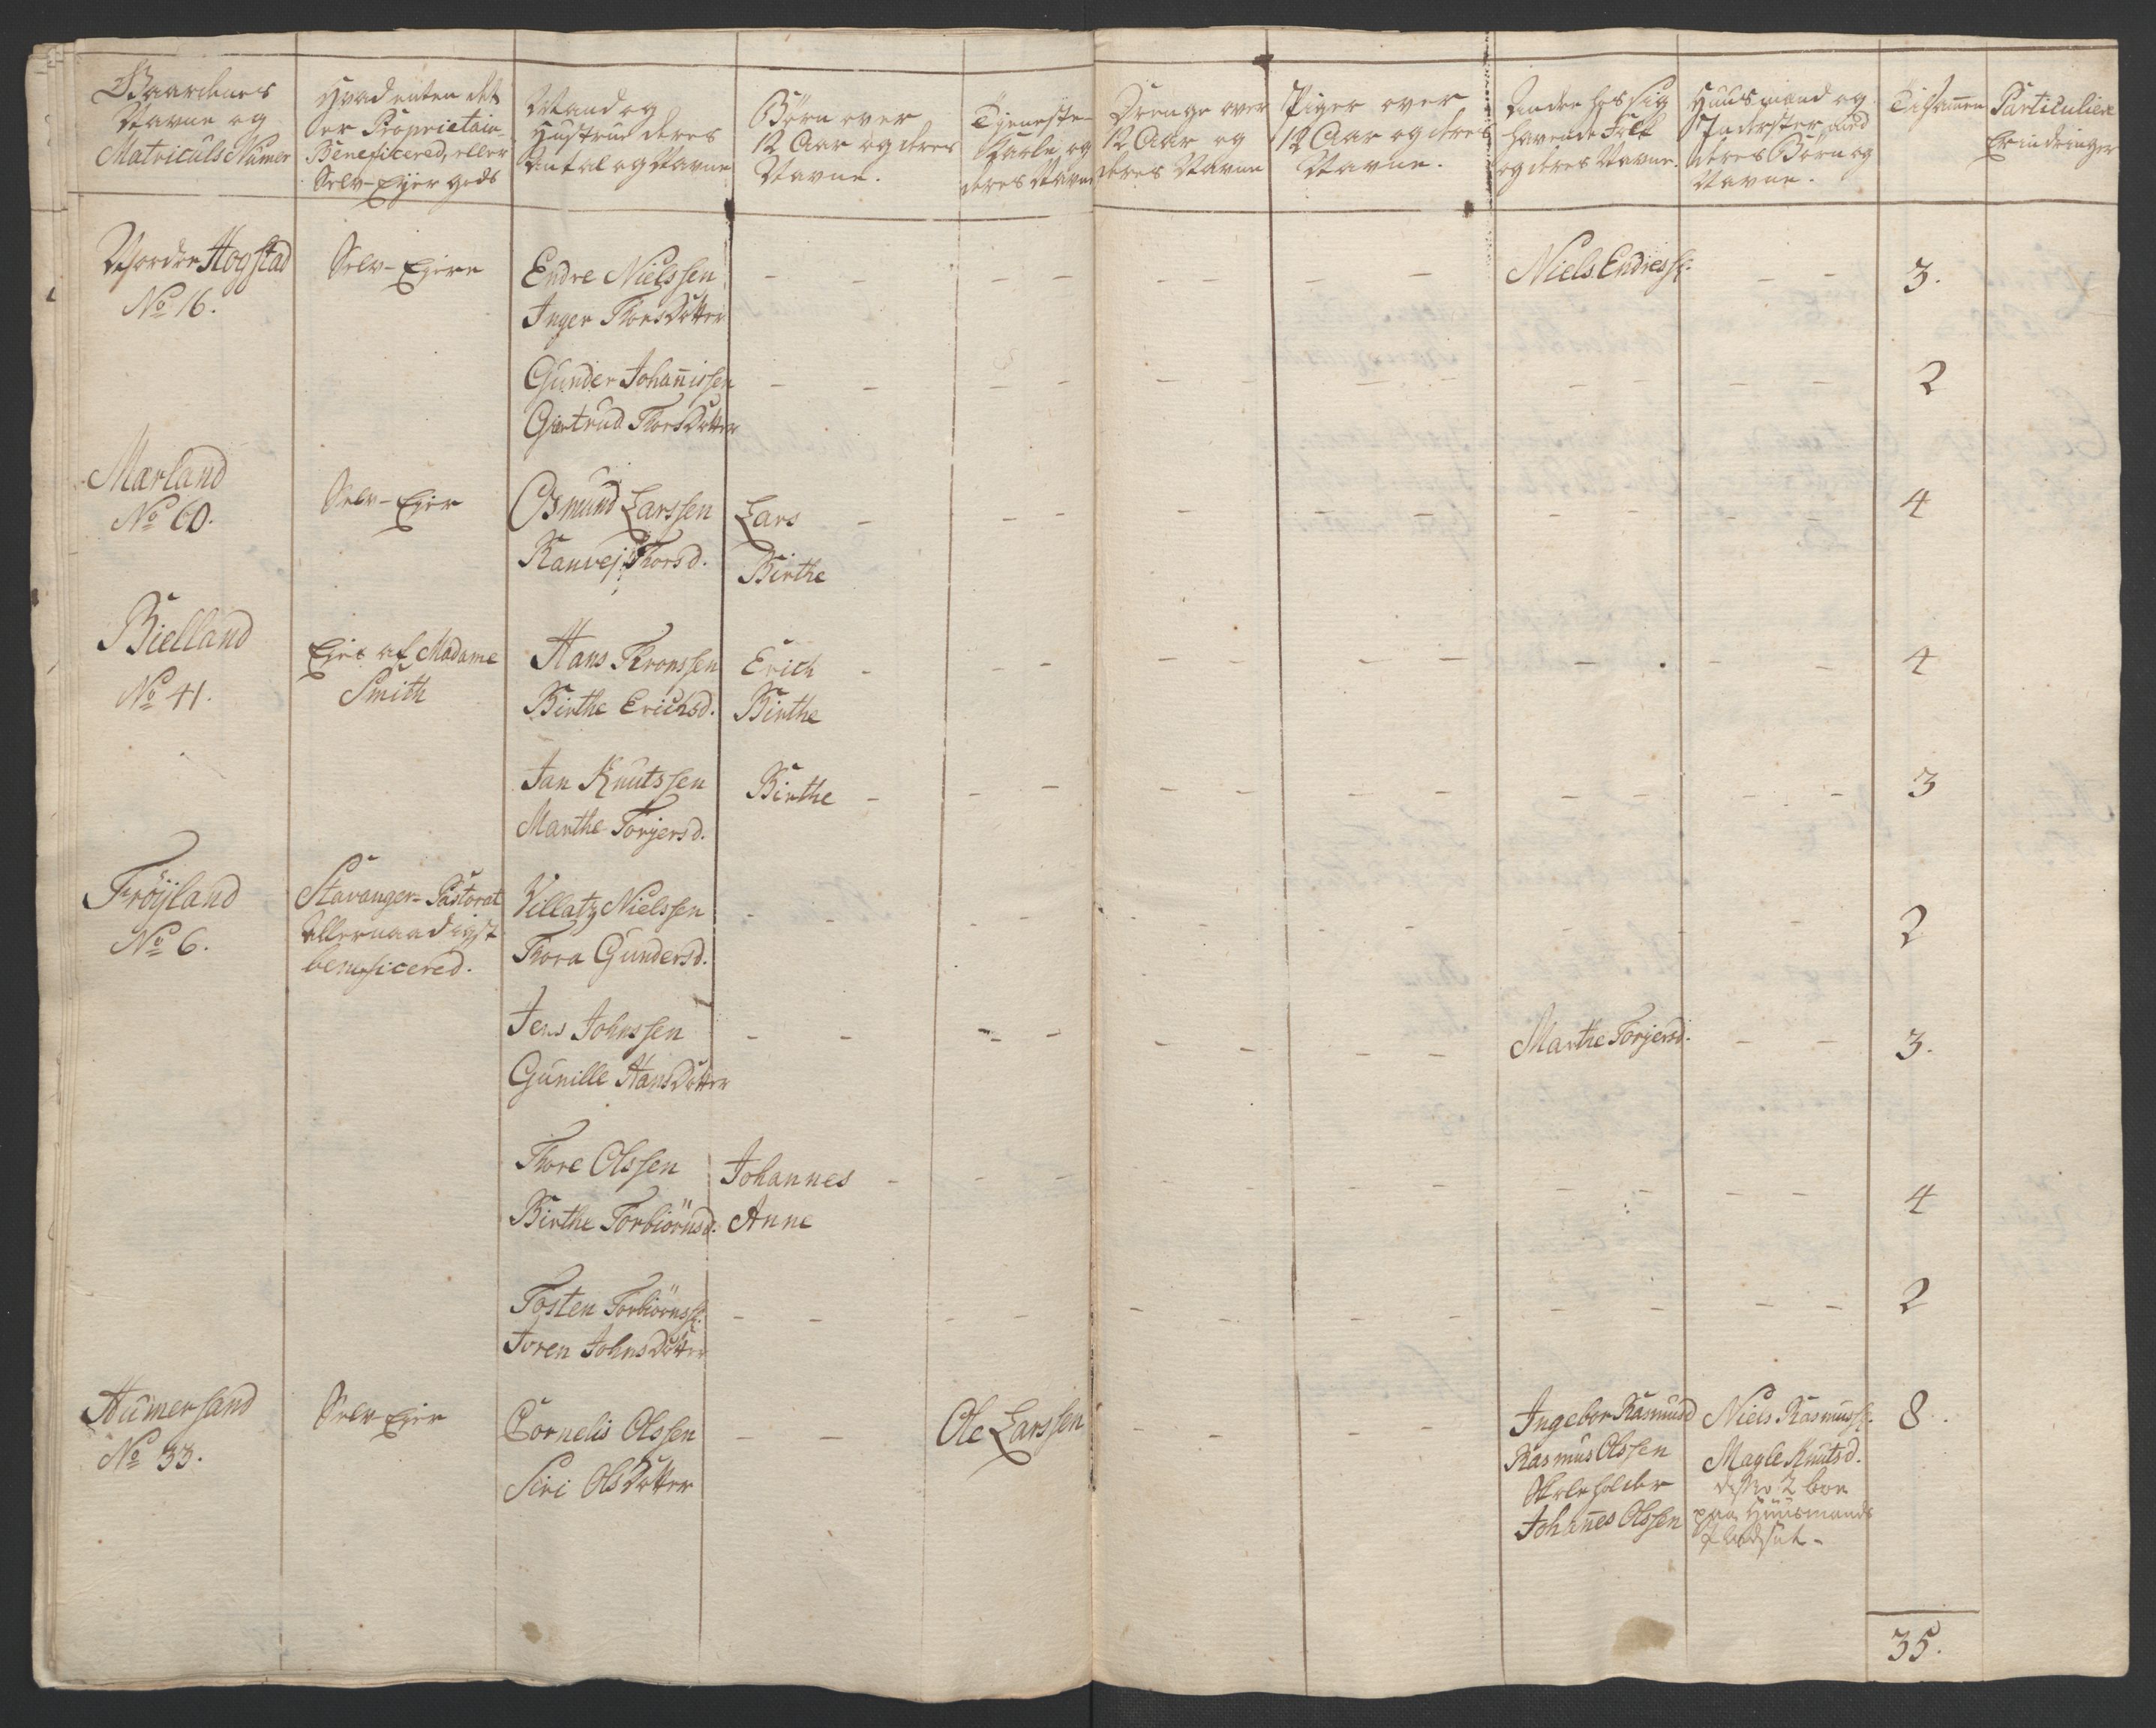 Gaardenes
Navne og
Matriculs Numer
Hvad enten det
er Proprietair-
Beneficered, eller
Selv-Ejer gods
Mand og
Hustrue deres
Antal og Navne
Børn over
12 Aar og deres
Navne.
Tjeneste-
Karle og
deres Navne
Drenge over
12 Aar og
deres Navne
Piger over
12 Aar og deres
Navne.
Andre hos sig
havende Folk
og deres Navne.
Huusmænd og
Inderster med
deres Børn og
Navne.
Tilsam̄en
Particuliere
Erindringer
Nordre Hogstad
No 16.
Selv-Ejere
Endre Nielssen
Inger ThorsDotter
Niels Endressn.
3.
Gunder Johan̄issen
Giertrud ThorsDotter
2
Marland
No 60.
Selv-Ejer
Osmund Larssen
Ranvej Thorsd.
Lars
Birthe
4
Bielland
No 41.
Ejes af Madame
Smith
Hans Thronssen
Birthe Erichsd.
Erich
Birthe
4
Jan Knutssen
Marthe Torjersd.
Birthe
3
Fröyland
No 6.
Stavanger-Pastorat
Allernaadigst
beneficered.
Villatz Nielssen
Thora Gundersd.
2
Jens Johnssen
Gunille HansDotter
Marthe Torjersd.
3.
Thore Olssen
Birthe Torbiörnsd.
Johannes
Anne
4
Tosten Torbiörnss.
Joren JohnsDotter
2
Humersand
No 33.
Selv-Ejer
Cornelis Olssen
Siri OlsDotter
Ole Larssen
Ingebor Rasmusd
Rasmus Olssen
Skoleholder
Johan̄es Olssen
Niels Rasmuss.
Magle Knutsd.
disse 2 boe
paa Huusmands
8.
35.